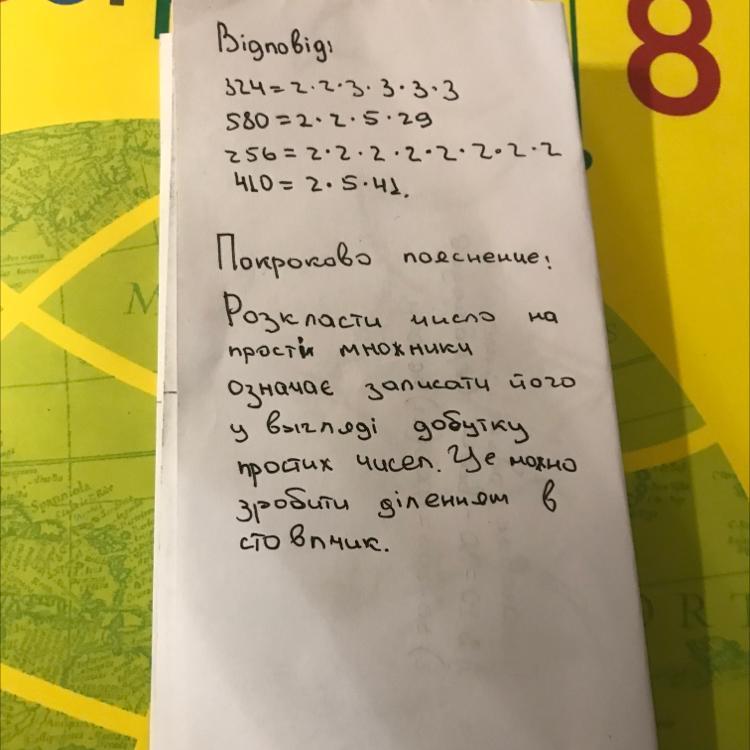 8
Відповід:
324=2·2·3·3·3·3
580=2·2·5·29
256=2·2·2·2·2·2·2·2
410=2·5·41.
Покроково пояснение:
Розкласти число на
прости множники
означає записати його
у выгляді добутку
простих чисел. Це можно
зробити діленням в
стовпчик.